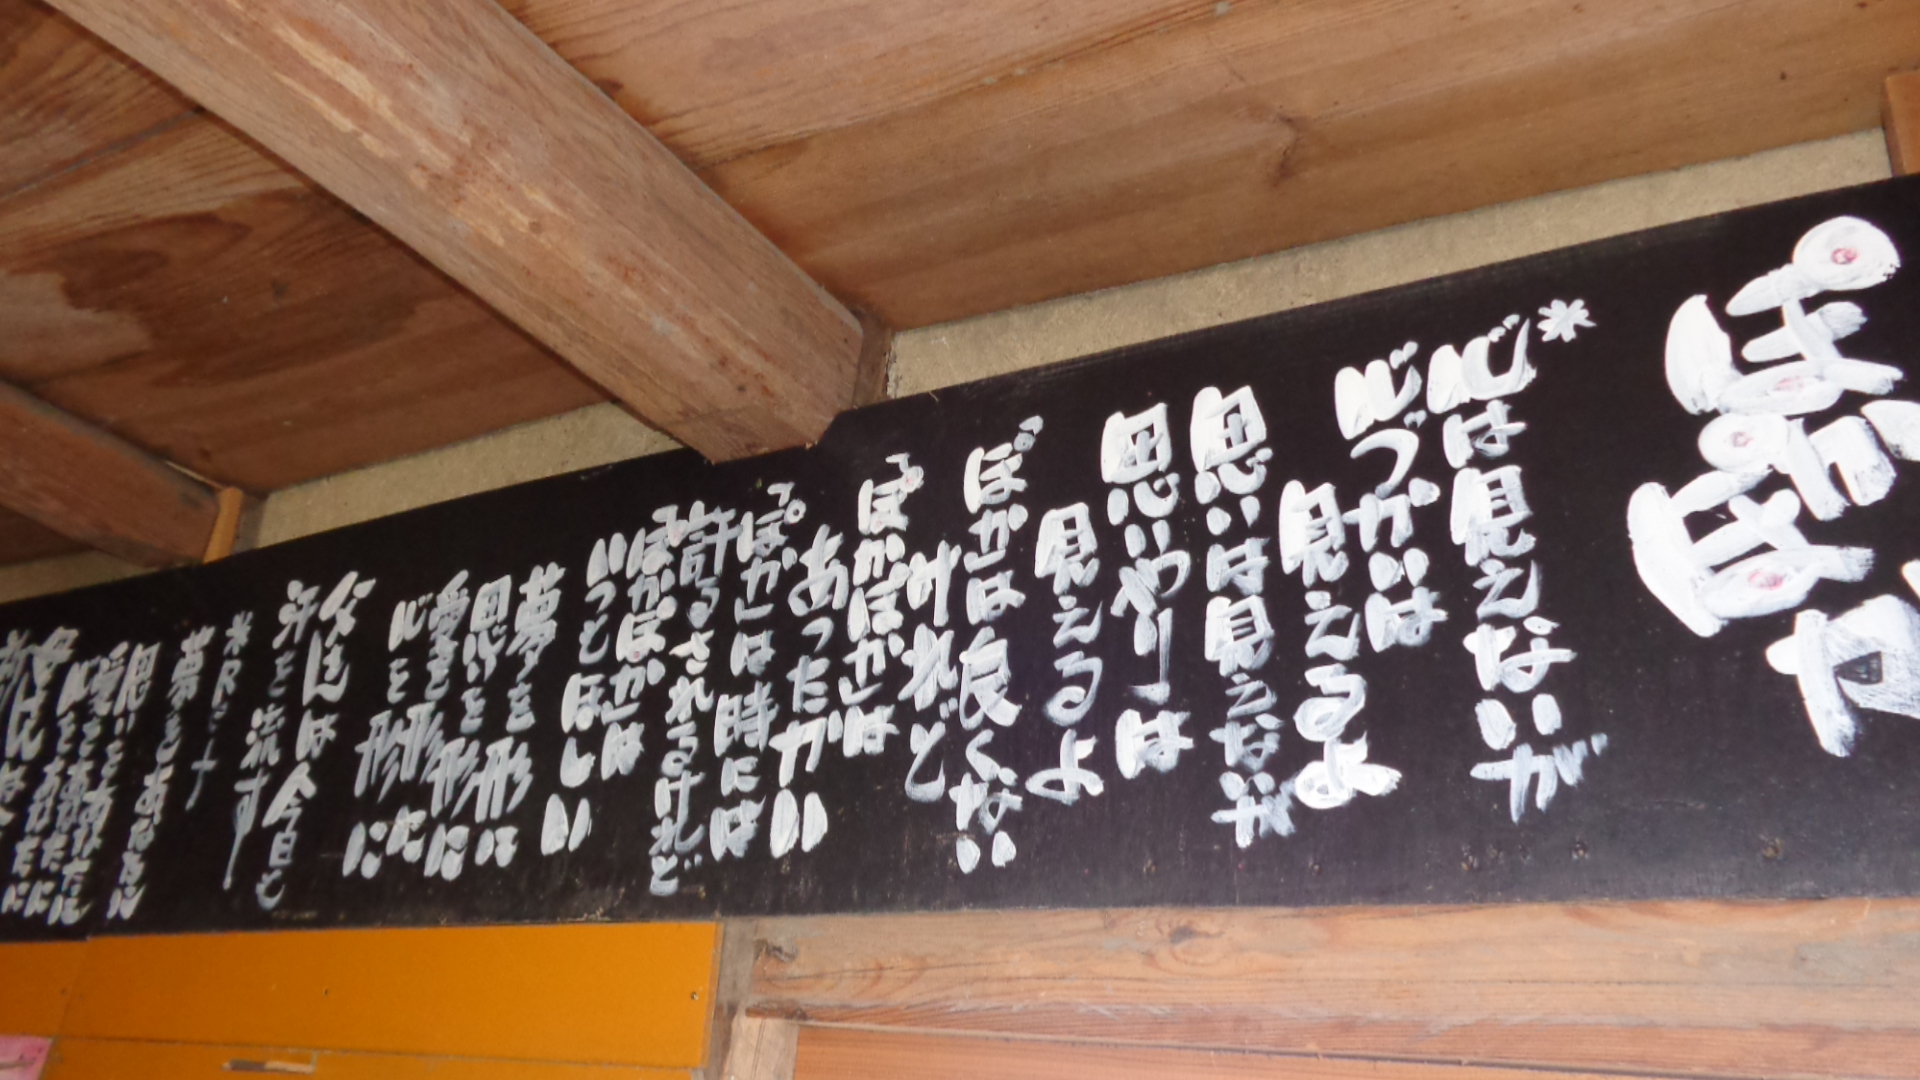 ぽかぽか
*心は見えないが
心づかいは
見えるよ
思いは見えなが
思いやりーは
見えるよ
ぽかは良くない
けれど
ぽかぽかは
あったかい
ぽかは時には
許るされるけれど
ぽかぽかは
いつもほしい
夢を
思いを形に
愛を形に
心を形に
父さんは今日も
汗を流す
思いをあなたに
愛をあなたに
心をあなたに